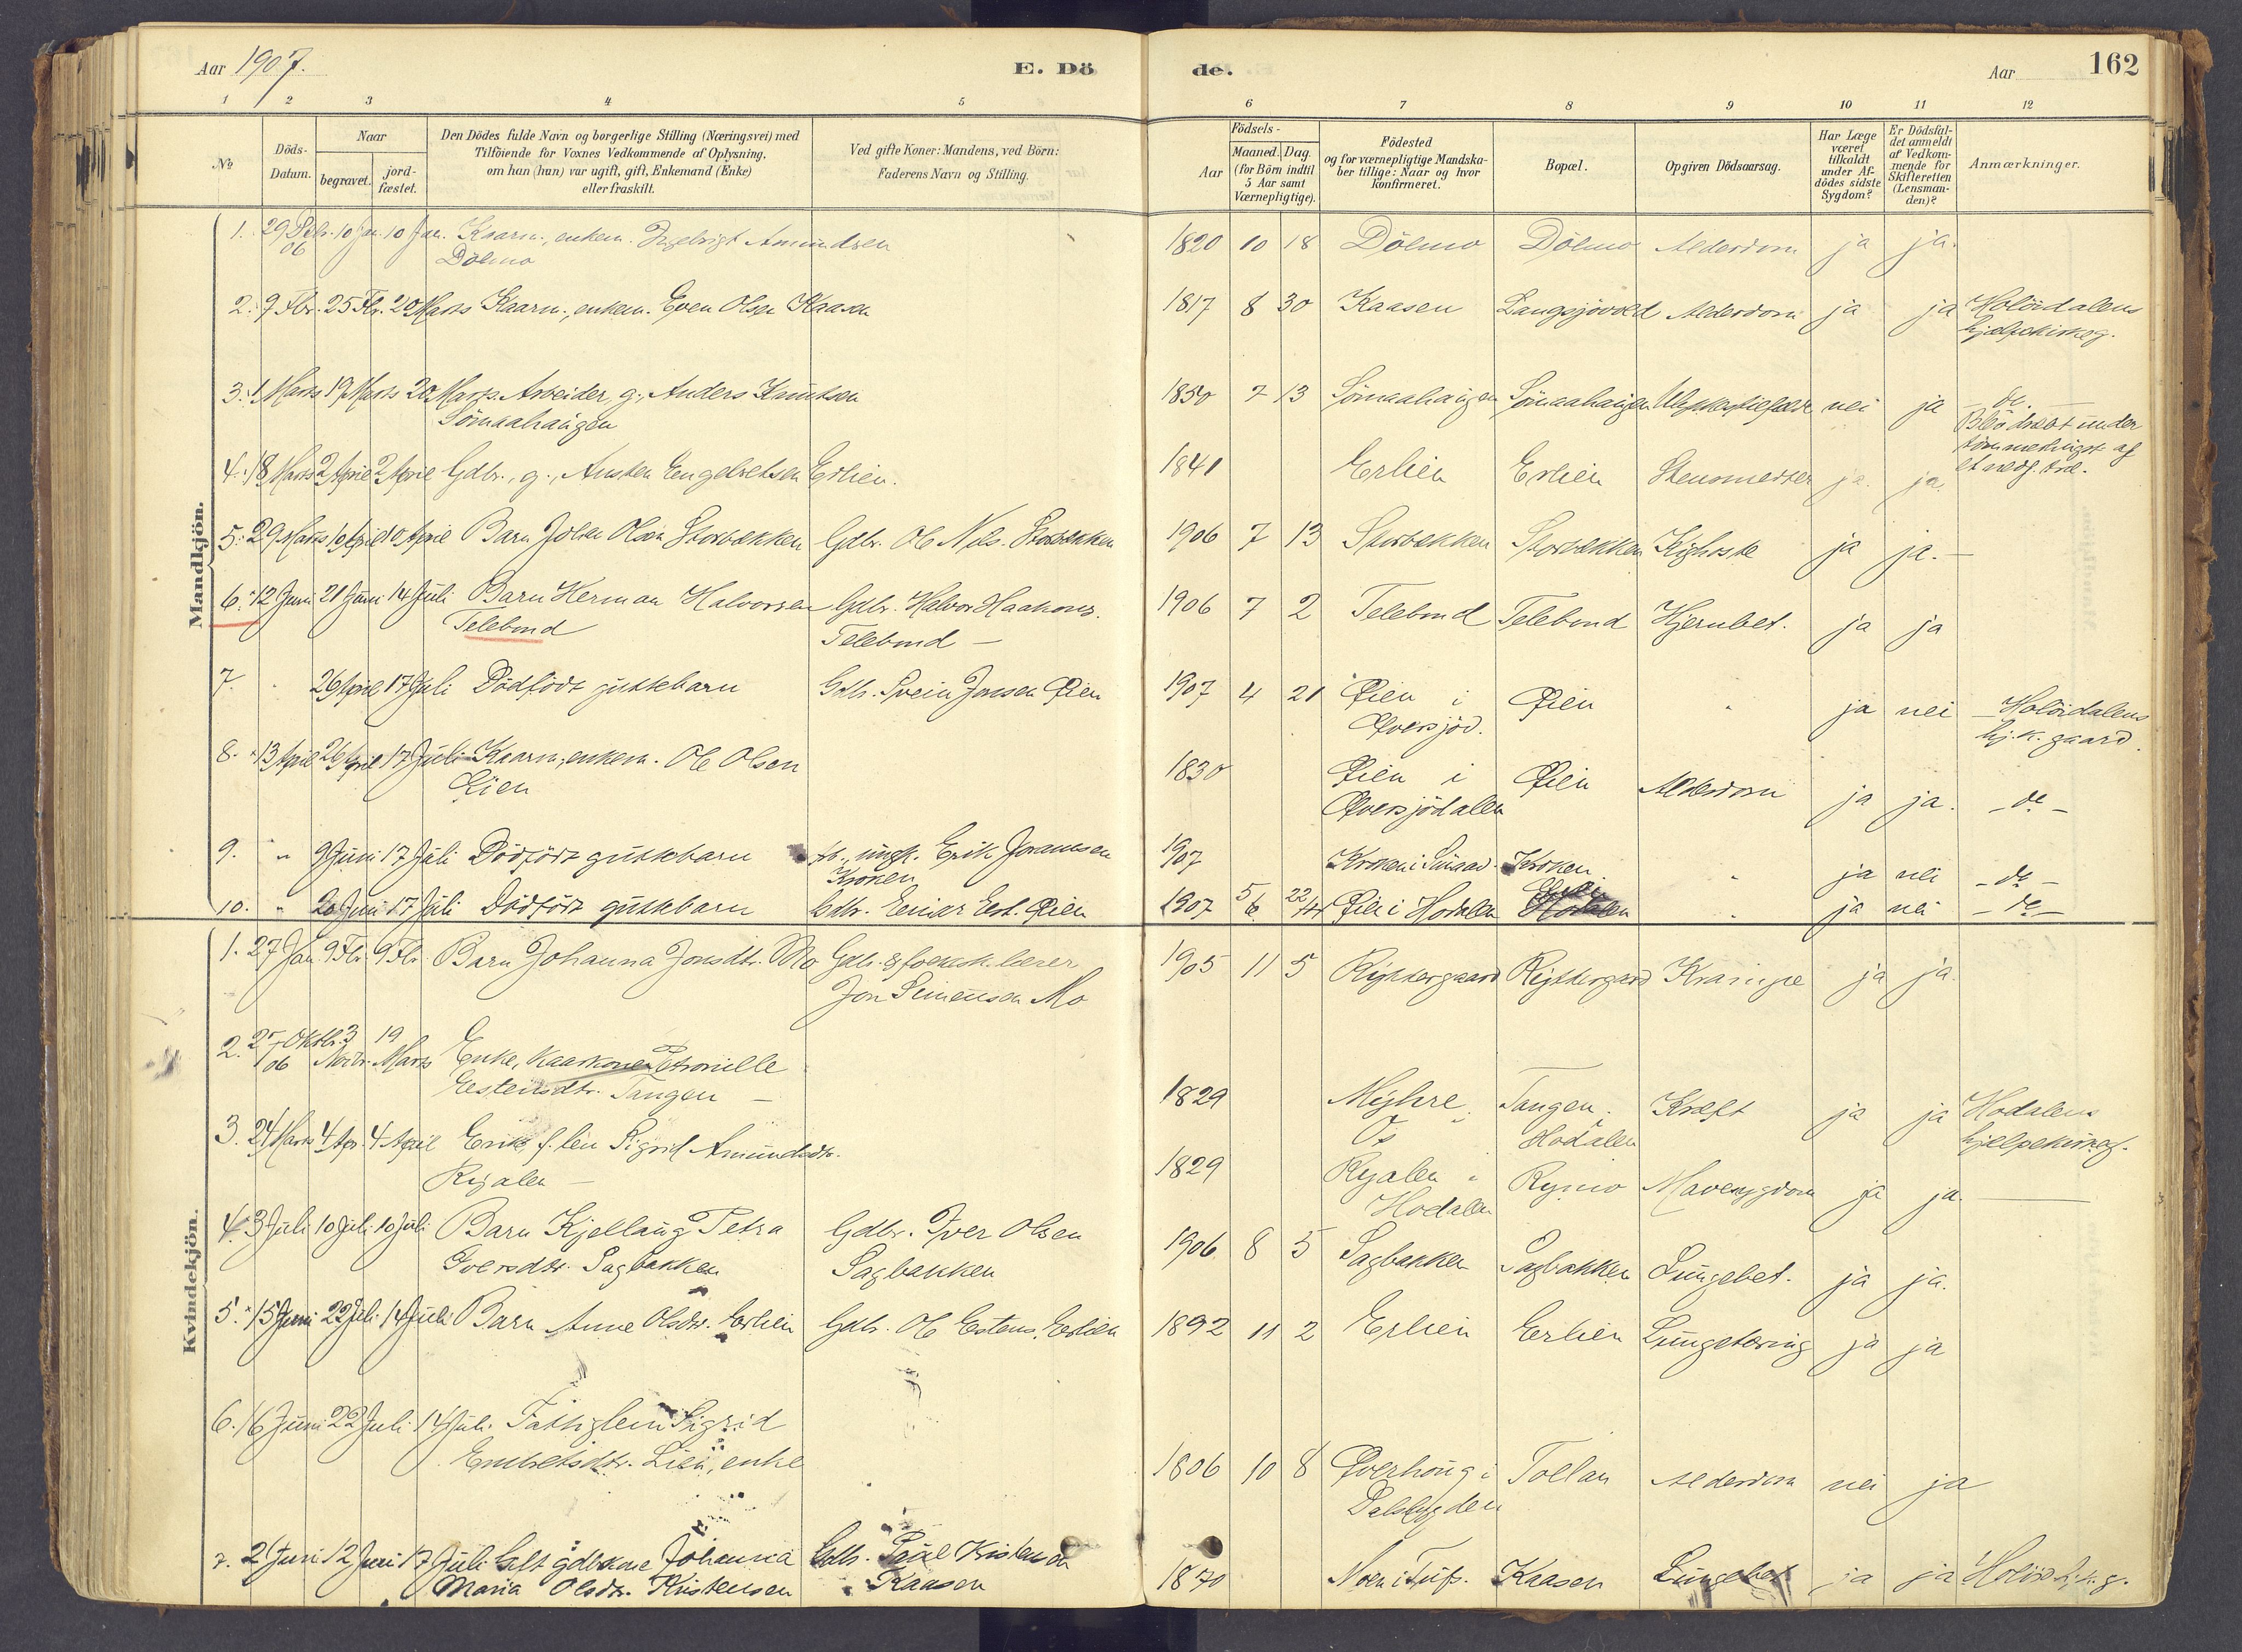 Aar 1907.
E. Dö
de.
Aar
162
1 2 3 4 5
6 7 8 9 10 11 12
No
Döds-
Datum.
Naar
begravet.
jord-
fæstet.
Den Dödes fulde Navn og borgerlige Stilling (Næringsvei) med
Tilföiende for Voxnes Vedkommende af Oplysning,
om han (hun) var ugift, gift, Enkemand (Enke)
eller fraskilt.
Ved gifte Koner: Mandens, ved Börn:
Faderens Navn og Stilling.
Aar
Födsels-
Maaned. Dag.
(for Börn indtil
5 Aar samt
Værnepligtige).
Födested
og for værnepligtige Mandska-
ber tillige: Naar og hvor
konfirmeret.
Bopæl.
Opgiven Dödsaarsag.
Har Læge
været
tilkaldt
under Af-
dödes sidste
Sygdom?
Er Dödsfal-
det anmeldt
af Vedkom-
mende for
Skifteretten
(Lensman-
den)?
Anmærkninger.
Mandkjön.
1. 29 Dcbr. 10 Jan. 10 Jan. Kaarm., enkem. Ingebrigt Amundsen 1820 10 18 Dölmo Dölmo Alderdom ja ja.
06 Dölmo
2. 9 Fbr. 25 Fbr. 20 Marts Kaarm., enkem. Even Olsen Kaasen 1817 8 30 Kaasen Langsjövold Alderdom ja ja Holöidalens
hjelpekirkeg.
3. 1 Marts 19 Marts 20 Marts Arbeider, g., Anders Knutsen 1850 7 13 Sömaahaugen Sömaahaugen nei ja do.
Sömaahaugen
under
tömmerhugst af
et nedf. træ.
4. 18 Marts 2 April 2 April Gdbr., g., Austen Engebretsen Erlien. 1841 Erlien Erlien ja. ja.
5. 29 Marts 10 April 10 April Barn Olsen Storbekken Gdbr. Ole Nils. Storbekken 1906 7 13 Storbekken Storbekken Kighoste ja ja.
6. 12 Juni 21 Juni 14 Juli Barn Herman Halvorsen Gdbr. Halvor Haakons. 1906 7 2 Telebond Telebond Hjernbet. ja ja
Telebond Telebond
7. 26 April 17 Juli Dödfödt guttebarn Gdb. Svein Jonsen Øien 1907 4 21 Øien i Øien " ja nei Holöidalens
Øversjød. hj.k. gaard.
8. 13 April 26 April 17 Juli Kaarm., enkem. Ole Olsen 1830 Øien i Øien Alderdom ja ja. do
Øien Øversjödalen
9. " 9 Juni 17 Juli Dödfödt guttebarn ungk. Erik 1907 Kroken. " ja nei do
Kroken
10. " 20 Juni 17 Juli Dödfödt guttebarn Gdbr. Einar Est. Øien 1907 5 22 Øien i Hodalen " ja nei do
Kvindekjön.
1. 27 Jan 9 Fbr. 9 Fbr. Barn Johanna Jonsdtr. Mo Gdbr. & lærer 1905 11 5 Ryttergaard Ryttergaard Krampe ja ja.
Jon Simensen Mo
2. 25 Oktbr. 3 19
06 Novbr. Marts Enke, Kaarkone Petronille
Estensdtr. Tangen 1829 Myhre Tangen Kræft ja ja Hodalens
Os Hodalen hjelpekirkeg.
3. 24 Marts 4 Apr. 4 April Enke f. lem Sigrid Amundsdtr. 1829 Ryalen i Rymo Mavesygdom ja ja.
Ryalen Hodalen
4. 3 Juli 10 Juli 10 Juli Barn Kjellaug Petra Gdbr. Iver Olsen 1906 8 5 Sagbakken Sagbakken Lungebet. ja ja.
Iversdtr. Sagbakken Sagbakken
5. 15 Juni 22 Juli 14 Juli Barn Anne Olsdtr. Erlien Gdbr. Ole Estens. Erlien 1892 11 2 Erlien Erlien Lungetæring ja ja
6. 16 Juni 22 Juli 14 Juli. Fattiglem Sigrid
Embretsdtr. Lien, enke 1806 10 8 Øverhaug i Tollan Alderdom nei ja
Dalsbygden
7. 2 Juni 12 Juni 17 Juli Gift gdbrkone Johanna Gdb. Paul Kristensen 1870 Moen i Tufs. Kaasen Lungebet ja ja
Maria Olsdtr. Kristensen Kaasen